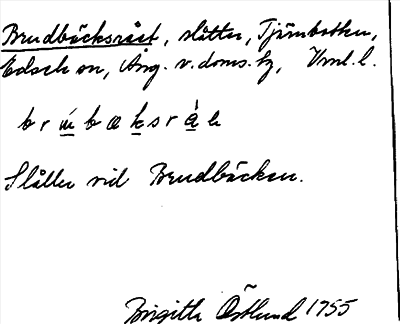 Brudbäcksråst, slåtter, Tjärnbotten,
Edsele sn, Ång. v. doms. hg, Vnl. l.
b r u̲ m b æ k s r å l e
Slåtter vid Brudbäcken.
Birgitta Östlund 1955